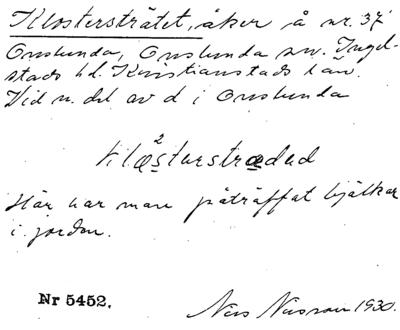 Klostersträtet, åker å nr. 37
Onslunda, Onslunda sn. Ingel-
stads hd. Kristianstads län.
Vid n. del av d i Onslunda
klo²sterstræded
Här har man påträffat bjälkar
i jorden.
Nr 5452.
Nils 1930.